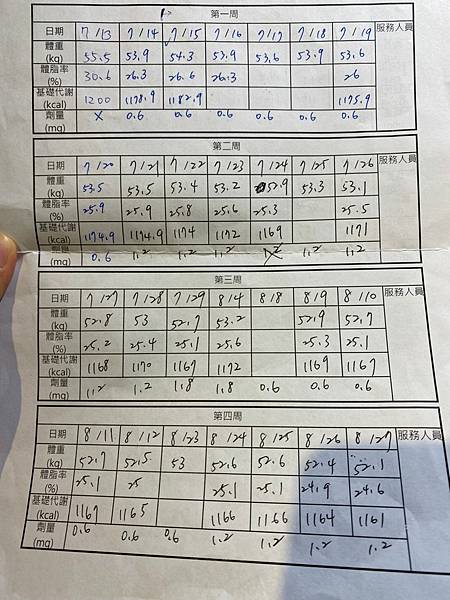 第一周
日期 7/13 7/14 7/15 7/16 7/17 7/18 7/19 服務人員
體重(kg) 55.5 53.9 54.3 53.9 53.6 53.9 53.6
體脂率(%) 30.6 26.3 26.6 26.3 26
基礎代謝(kcal) 1200 1178.9 1182.9 1175.9
劑量(mg) X 0.6 0.6 0.6 0.6 0.6 0.6
第二周
日期 7/20 7/21 7/22 7/23 7/24 7/25 7/26 服務人員
體重(kg) 53.5 53.5 53.4 53.2 52.9 53.3 53.1
體脂率(%) 25.9 25.9 25.8 25.6 25.3 25.5
基礎代謝(kcal) 1174.9 1174.9 1174 1172 1169 1171
劑量(mg) 0.6 1.2 1.2 1.2 1.2 1.2 1.2
第三周
日期 7/27 7/28 7/29 8/4 8/8 8/9 8/10 服務人員
體重(kg) 52.8 53 52.7 53.2 52.9 52.7
體脂率(%) 25.2 25.4 25.1 25.6 25.3 25.1
基礎代謝(kcal) 1168 1170 1167 1172 1169 1167
劑量(mg) 1.2 1.2 1.8 1.8 0.6 0.6 0.6
第四周
日期 8/11 8/12 8/23 8/24 8/25 8/26 8/27 服務人員
體重(kg) 52.7 52.5 53 52.6 52.6 52.4 52.1
體脂率(%) 25.1 25 25.1 25.1 24.9 24.6
基礎代謝(kcal) 1167 1165 1166 1166 1164 1161
劑量(mg) 0.6 0.6 0.6 1.2 1.2 1.2 1.2